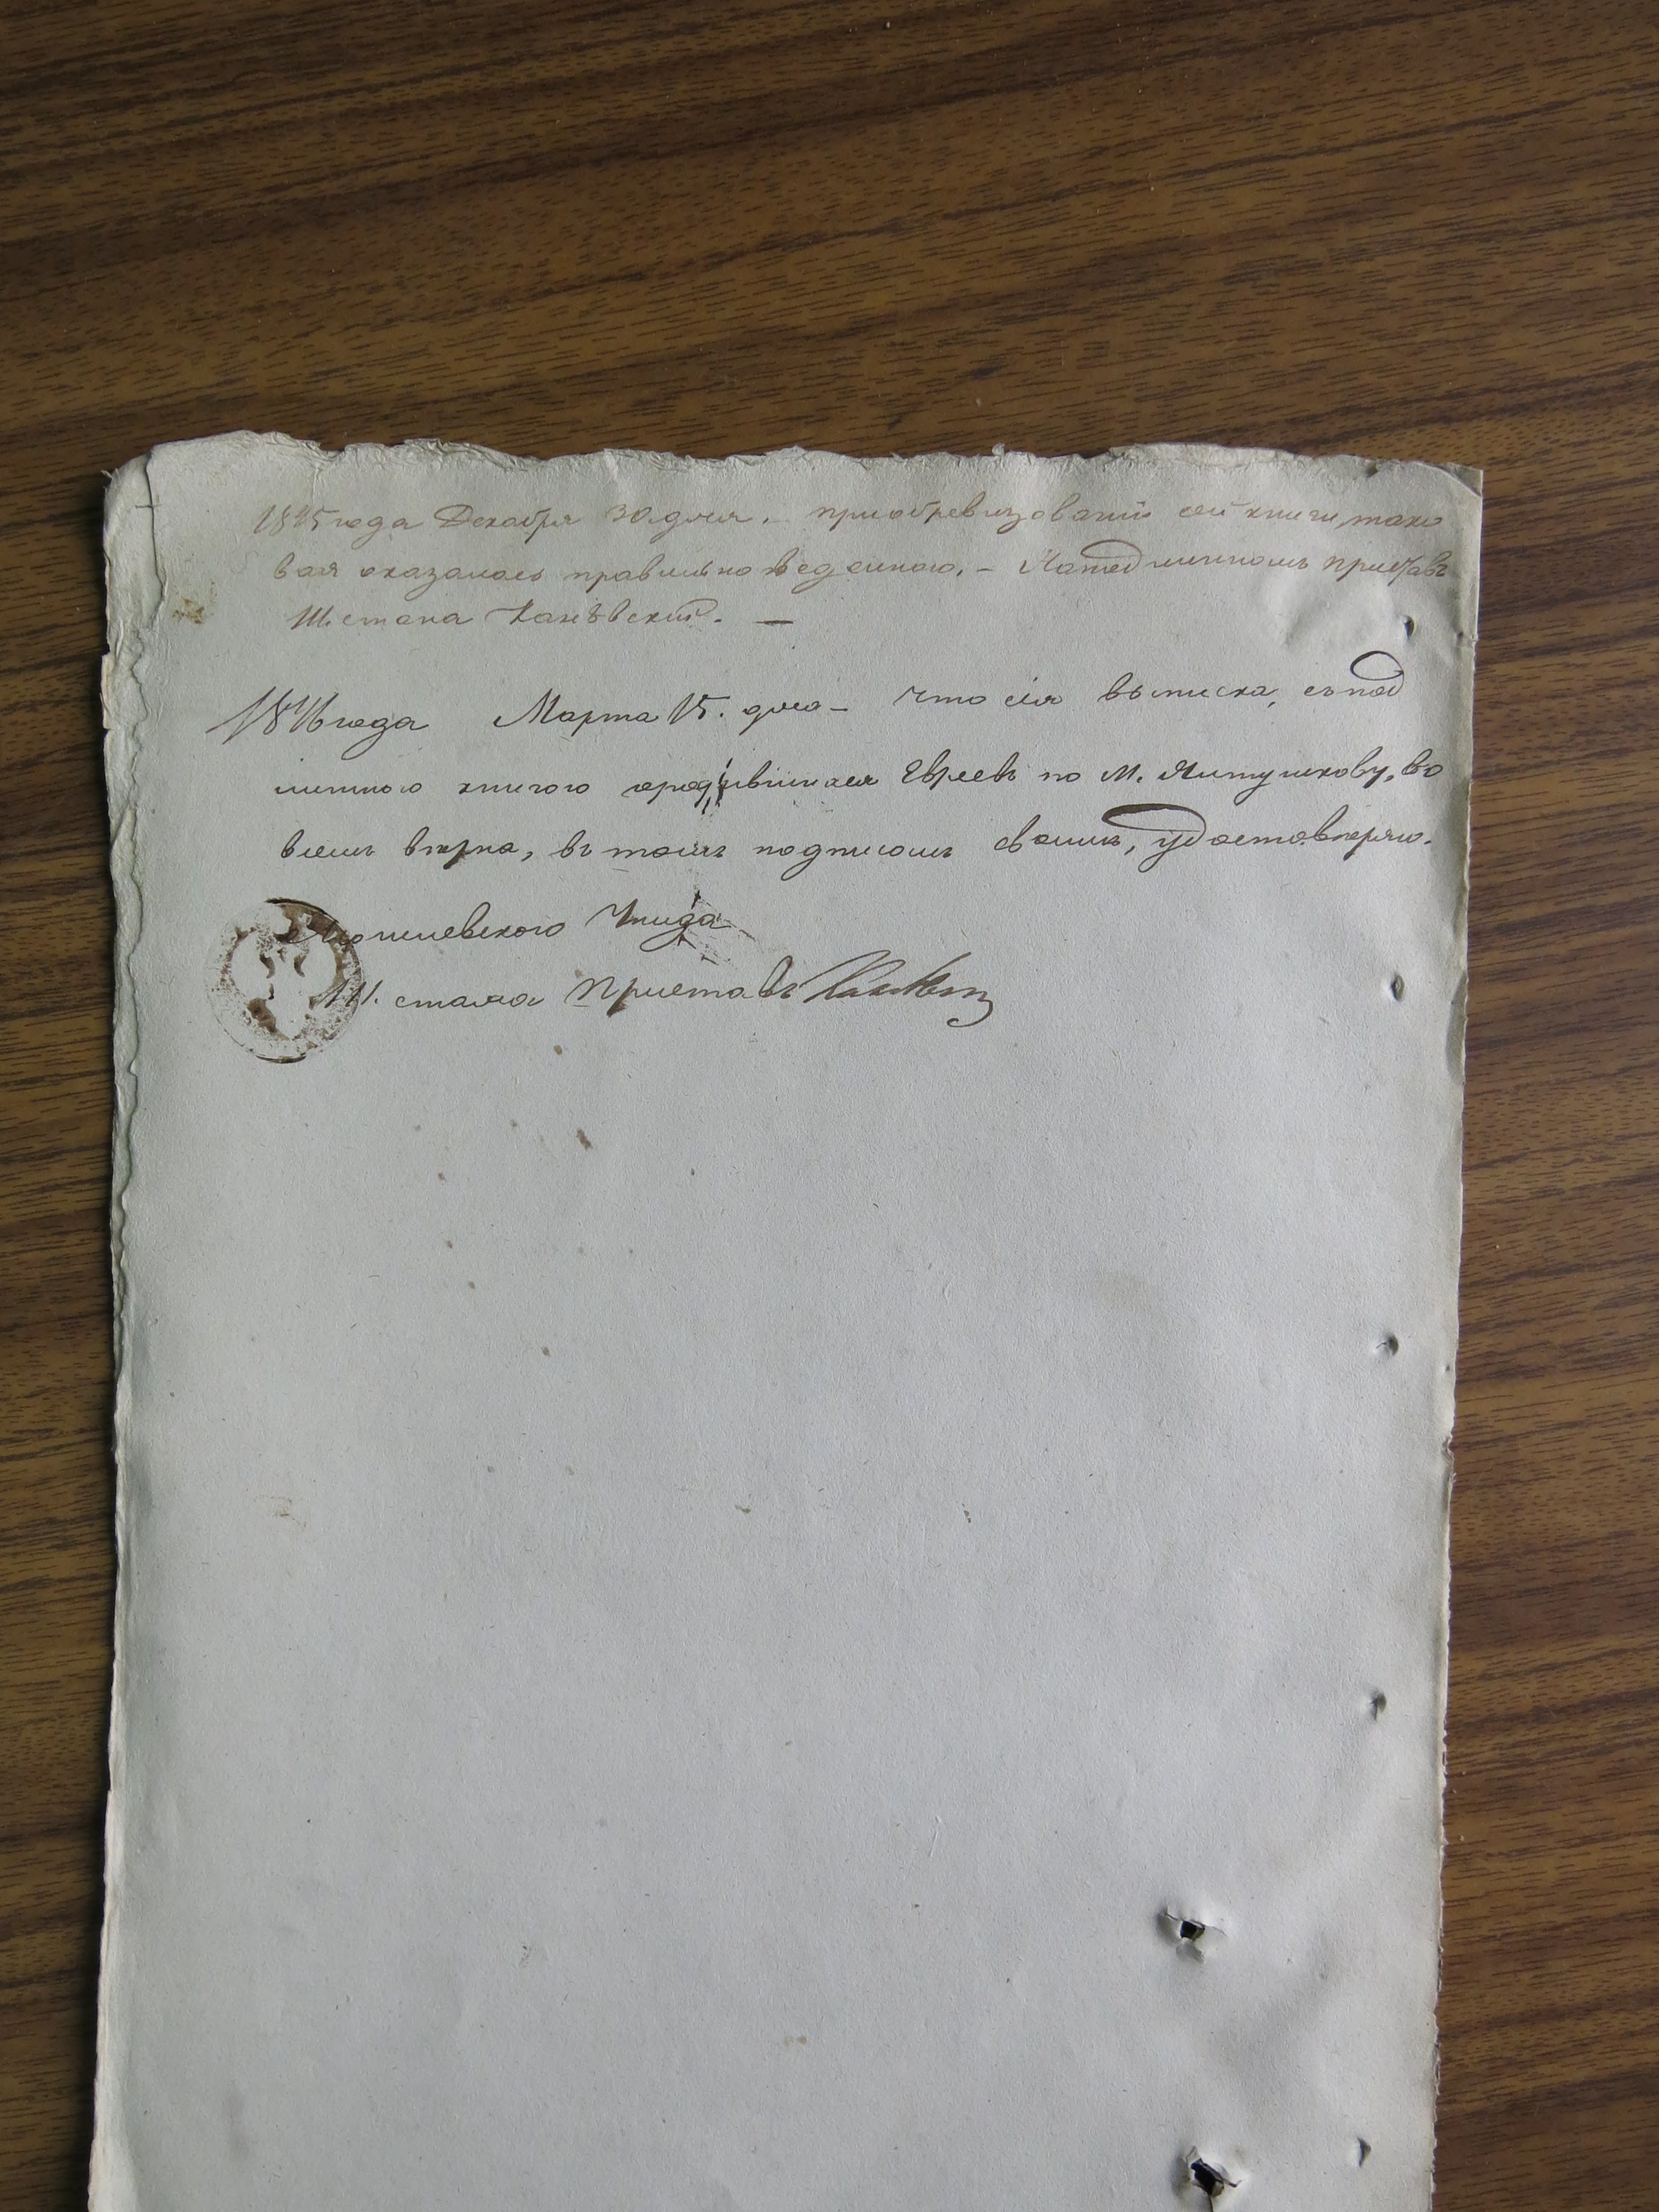 1845 года Декабря 30. дня. приобревизованiи сей книги, тако
вая оказалась правильно ведênною. – Наподлинномъ приставъ
III. стана Канѣвскiй. —
1846 года Марта 15. дня – что сiя выписка, съ под
линною книгою
родившихся Евреевъ по М. Янтушкову, во
всемъ вѣрна, въ томъ подписомъ своимъ, удостовѣряю.
Могилевского Уѣзда
III. стана Приставъ